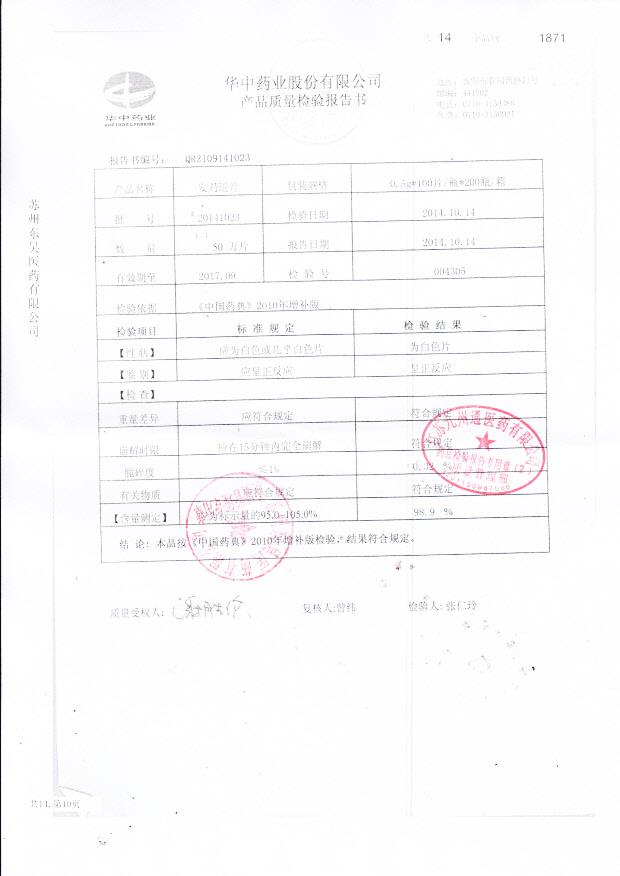 14
1871
华中药业股份有限公司
产品质量检验报告书
华中药业
邮编: 441002
电话: 0710-3150388
传真: 0710-3150921
苏州东吴医药有限公司
报告书编号: QR2109141023
产品名称 安乃近片 包装规格 0.5g*100片/瓶*200瓶/箱
批 号 20141023 检验日期 2014.10.14
数 量 50 万片 报告日期 2014.10.14
有效期至 2017.09 检 验 号 004305
检验依据 《中国药典》2010年增补版
检验项目 标 准 规 定 检 验 结 果
【性 状】 应为白色或几乎白色片 为白色片
【鉴 别】 应呈正反应 呈正反应
【检 查】
重量差异 应符合规定 符合规定
崩解时限 应在15分钟内完全崩解 符合规定
脆碎度 ≤1% %
有关物质 应符合规定 符合规定
【含量测定】 应为标示量的95.0-105.0% 98.9 %
结 论: 本品按《中国药典》2010年增补版检验, 结果符合规定。
江苏九州通医药有限公司
药品检验报告专用章(2)
质量管理部
质量受权人:
复核人:曾纬
检验人:张仁玲
共11, 第10页